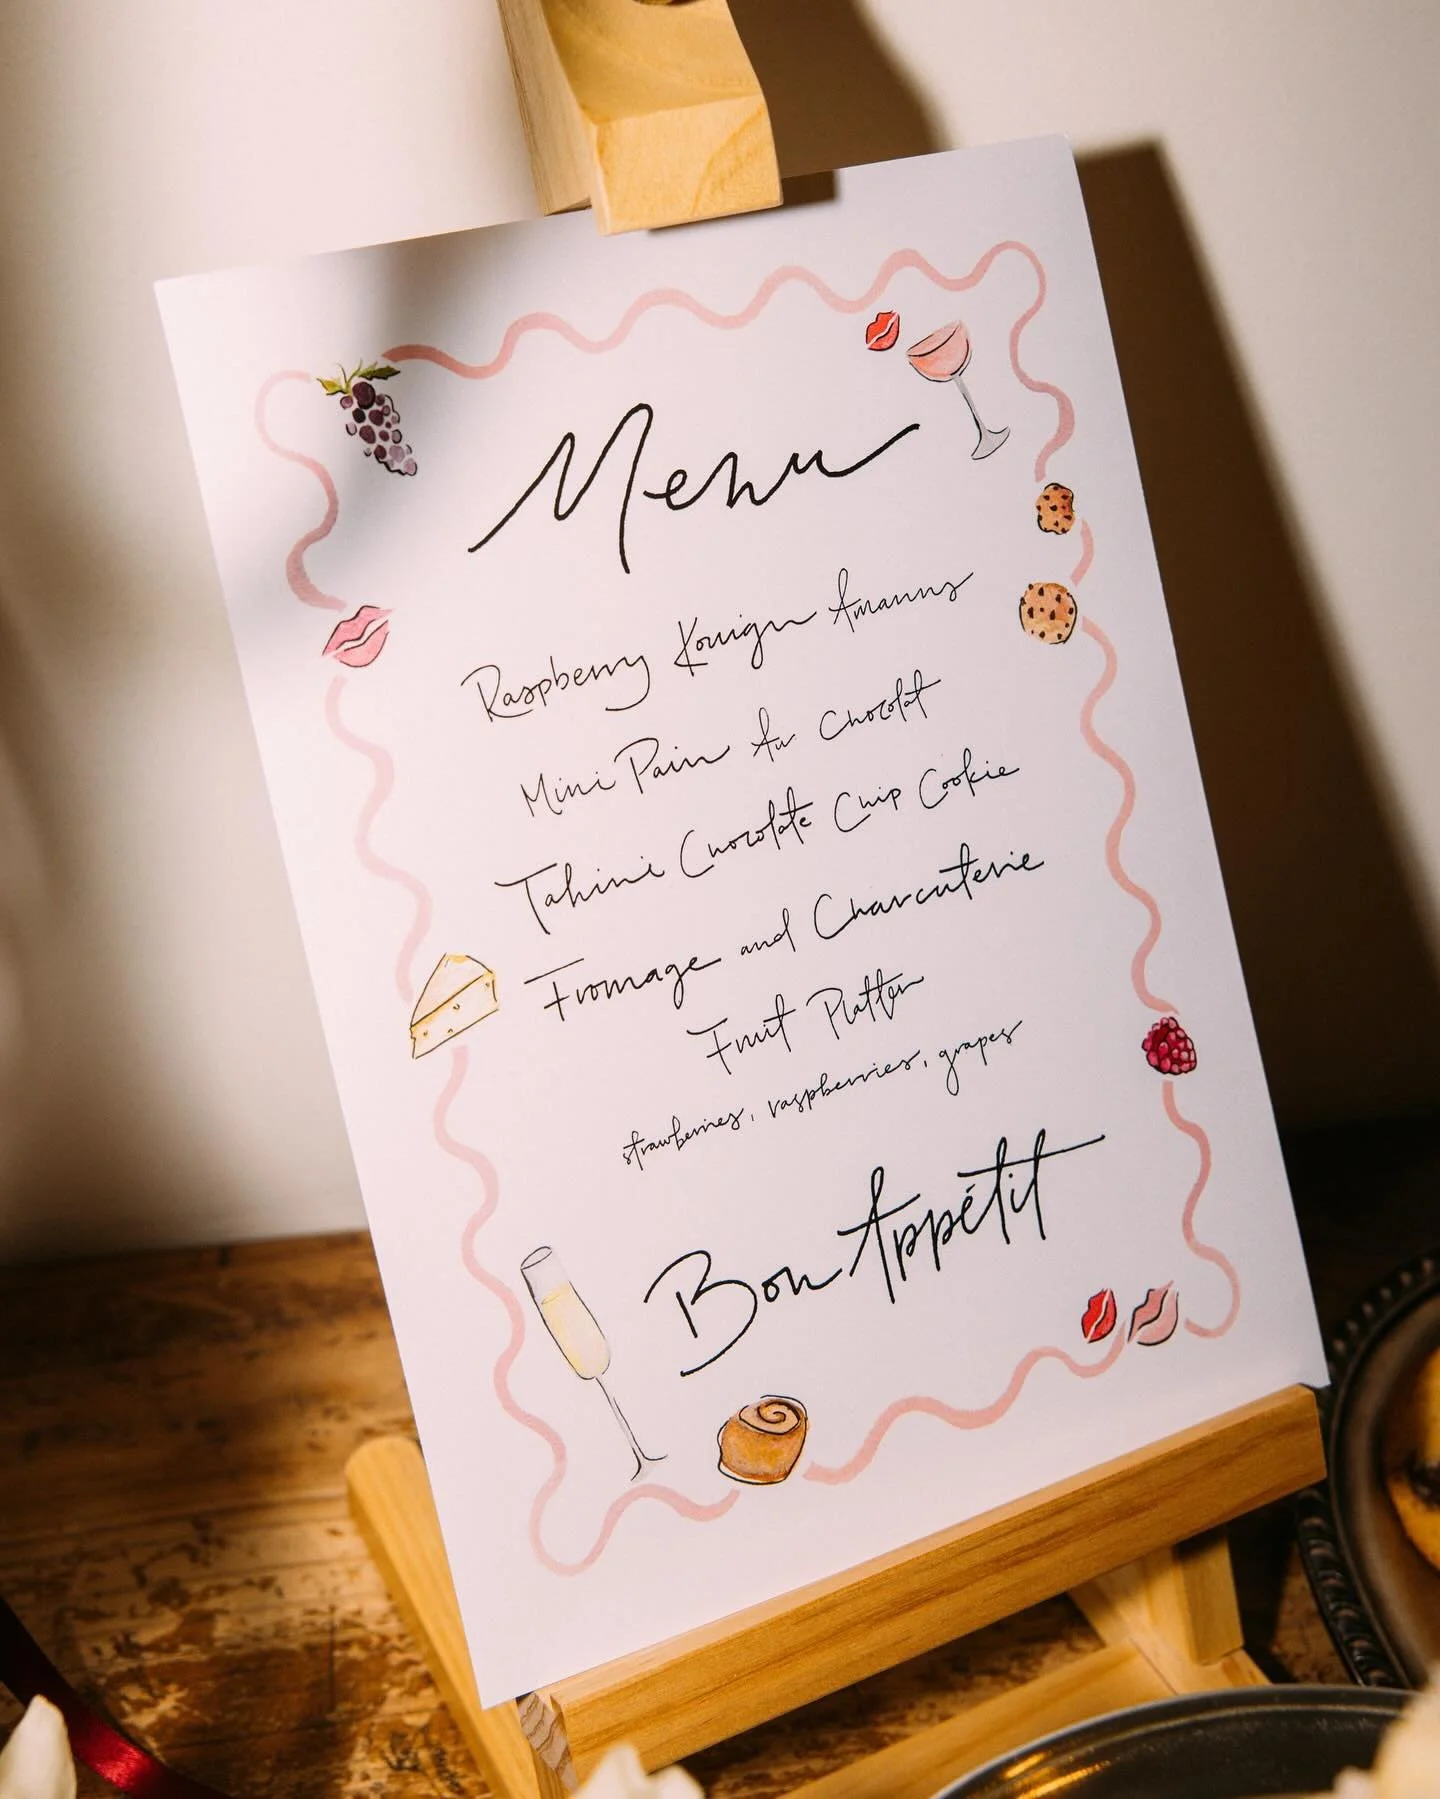 Menu
Raspberry Kouign Amanns
Mini Pain Au Chocolat
Tahini Chocolate Chip Cookie
Fromage and Charcuterie
Fruit Platter
strawberries, raspberries, grapes
Bon Appétit